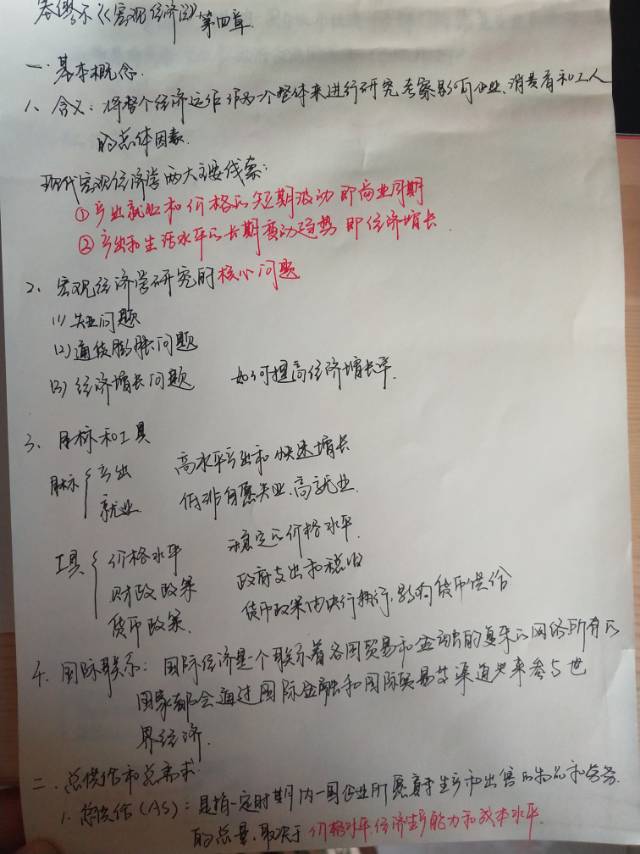 《宏观经济学》第四章
一、基本概念.
1、含义：将整个经济运作作为一个整体来进行研究,考察影响企业、消费者和工人
的总体因素.
现代宏观经济学两大主要线索:
①产出就业和价格的短期波动 即商业周期
②产出和生活水平的长期变动趋势 即经济增长.
2、宏观经济学研究的核心问题
(1)失业问题
(2)通货膨胀问题
(3)经济增长问题 如何提高经济增长率.
3、目标和工具
目标 产出 高水平产出和快速增长
就业 低非自愿失业、高就业.
工具 价格水平 稳定的价格水平.
财政政策 政府支出和税收
货币政策. 货币政策由央行执行,影响货币供给
4.国际联系：国际经济是个联系着各国贸易和金融的复杂的网络所有的
国家都会通过国际金融和国际贸易等渠道来参与世
界经济.
二、总供给和总需求.
1.总供给(AS)：是指一定时期内一国企业所愿意生产和出售的物品和劳务
的总量,取决于价格水平,经济生产能力和成本水平.